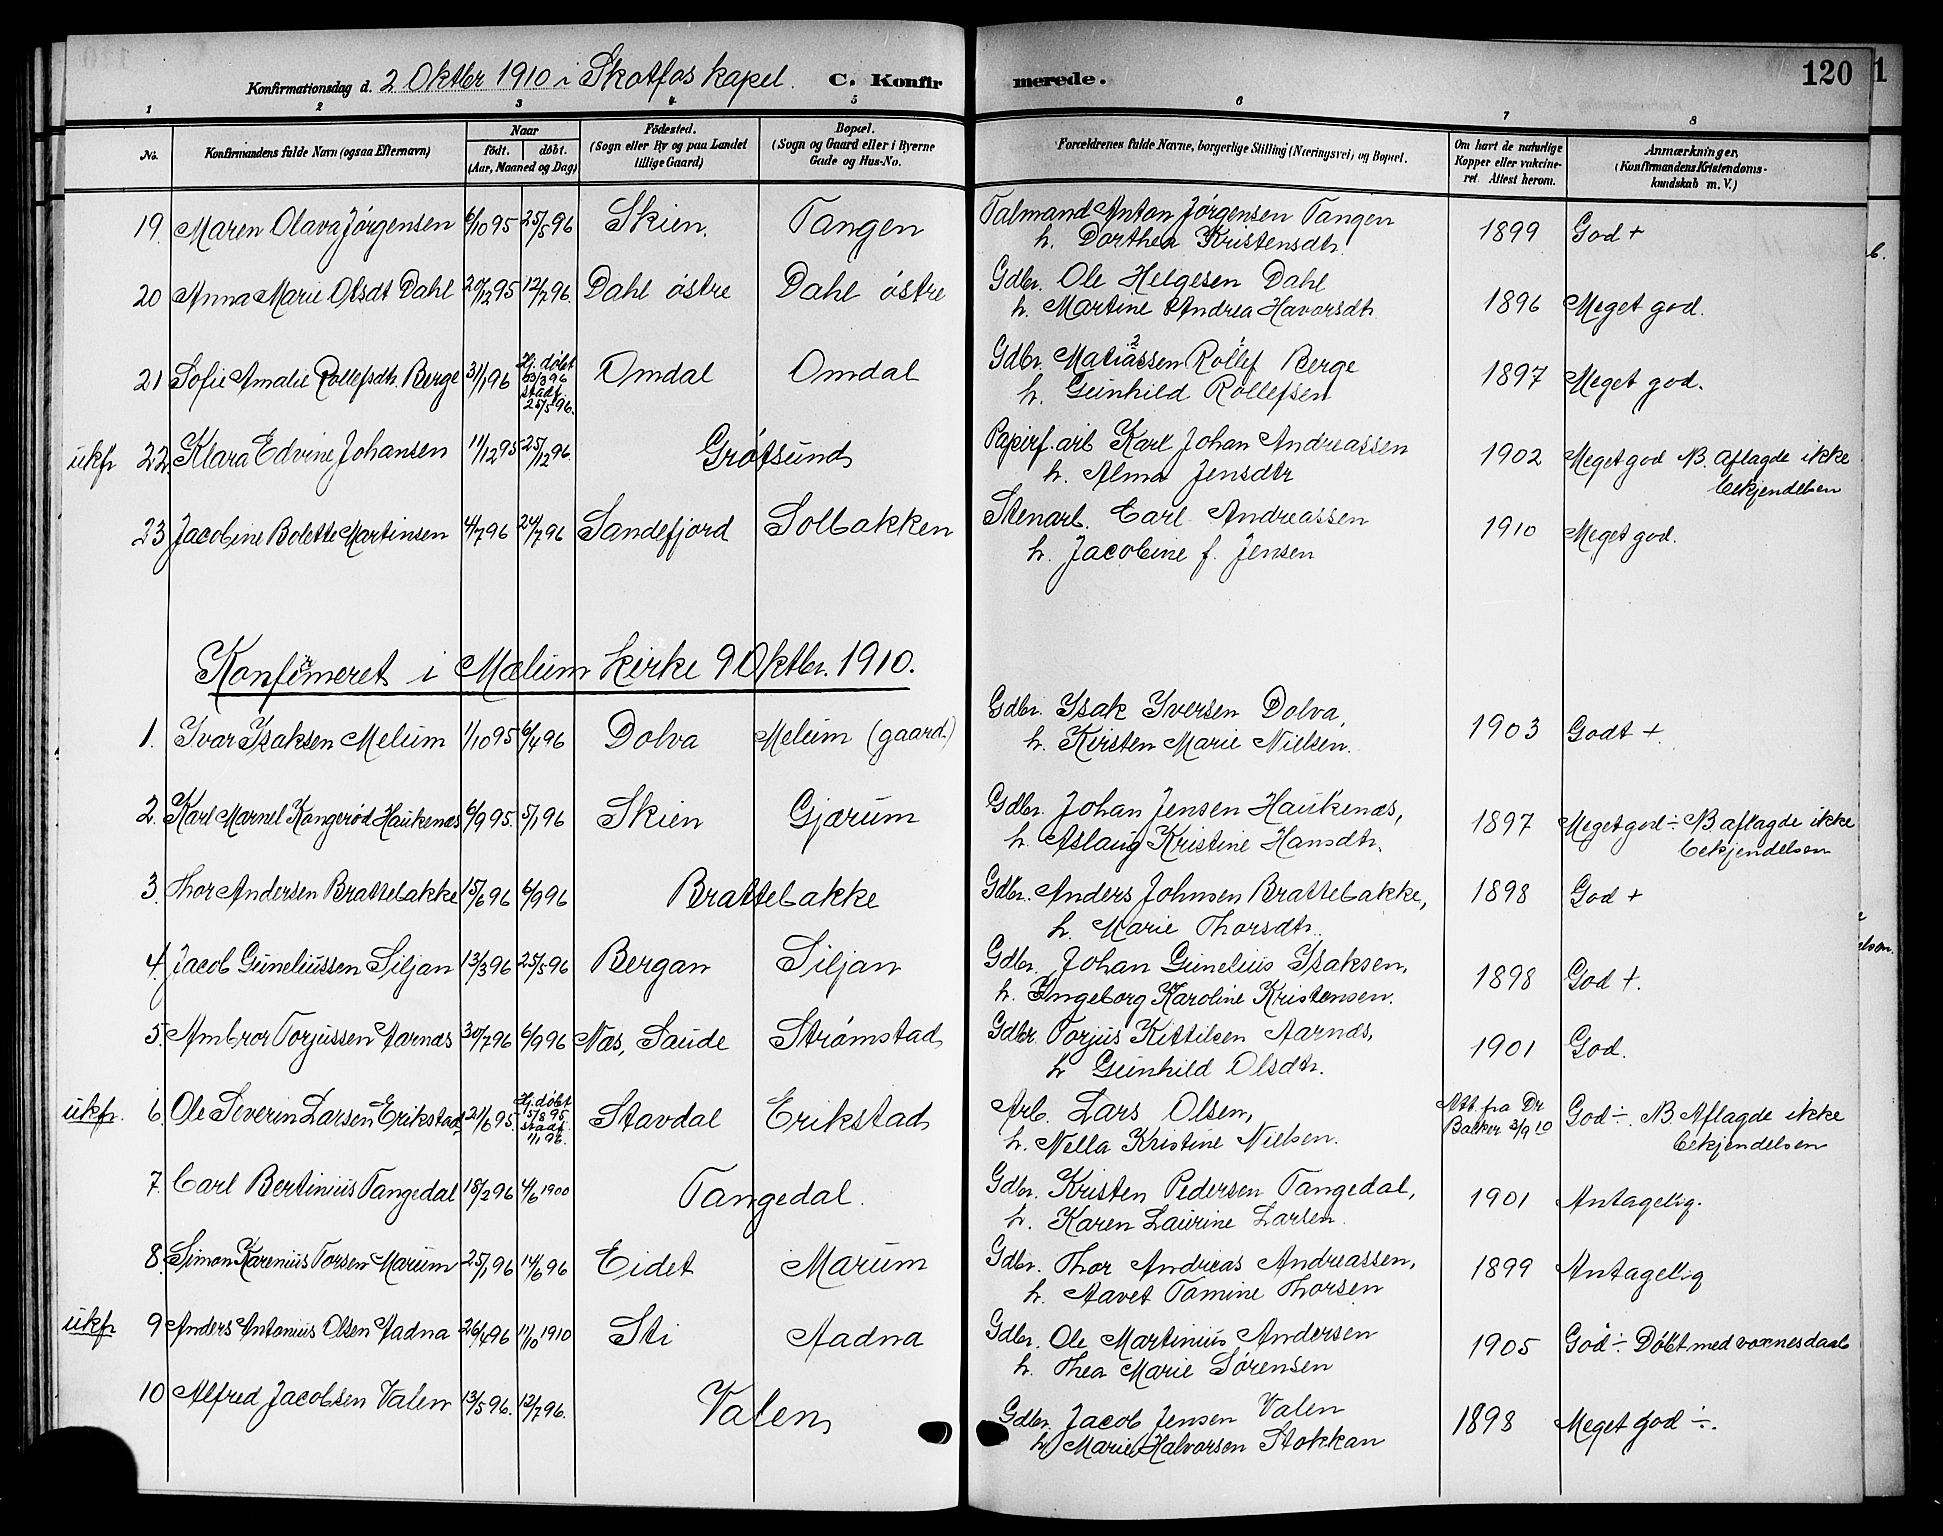 Konfirmationsdag d. 2 Oktber 1910 i Skotfos kapel. C. Konfirmerede. 120
1 2 3 4 5 6 7 8
No. Konfirmandens fulde Navn (ogsaa Efternavn) Naar født. døbt. (Aar, Maaned og Dag) Fødested. (Sogn eller By og paa Landet tillige Gaard) Bopæl. (Sogn og Gaard eller i Byerne Gade og Hus-No. Forældrenes fulde Navne, borgerlige Stilling (Næringsvei) og Bopæl. Om havt de naturlige Kopper eller vakcineret. Attest herom. Anmærkninger. (Konfirmandens Kristendomskundskab m. V.)
19. Maren Olava Jørgensen 6/10 95 25/5 96 Skien. Tangen Talmand Anton Jørgensen Tangen 1899 God +
h. Dorthea Kristensdtr.
20 Anna Marie Olsdt Dahl 20/12 95 12/7 96. Dahl østre Dahl østre Gdbr. Ole Helgesen Dahl 1896 Meget god.
h. Martine Andrea Havorsdtr
21 Sofie Amalie Rollefsdtr. Berge 31/1 96 Hj. døbt 23/3 96 stadf. 25/5 96. Omdal Omdal Gdbr. Matiassen Rollef Berge 1897 Meget god.
h. Gunhild Rollefsen
ukfr 22 Klara Edvine Johansen 11/12 95 25/12 96. Grøtsund Papirf. arb Karl Johan Andreassen 1902 Meget god NB. aflagde ikke
h. Alma Jensdtr bekjendelsen
23 Jacobine Bolette Martinsen 4/7 96 24/7 96 Sandefjord Solbakken Stenarb. Carl Andreassen 1910 Meget god.
h. Jacobine f. Jensen
Konfirmeret i Mælum kirke 9 Oktbr. 1910.
1. Ivar Isaksen Melum 1/10 95 6/4 96 Dolva Melum (gaard.) Gdbr. Isak Iversen Dolva, 1903 Godt +.
h. Kirsten Marie Nielsen.
2. Karl Marnel Kongerød Haukenæs 6/9 95. 5/1 96 Skien Gjærum Gdbr. Johan Jensen Haukenæs, 1897 Meget god ÷ NB aflagde ikke
h. Aslaug Kristine Hansdtr. bekjendelsen
3. Thor Andersen Brattebakke 15/6 96 6/9 96 Brattebakke Gdbr. Anders Johnsen Brattebakke, 1898 God +
h. Marie Thorsdtr.
4. Jacob Guneliussen Siljan 13/3 96 25/5 96 Bergan Siljan Gdbr. Johan Gunelius Isaksen, 1898 God +.
h. Ingeborg Karoline Kristensen.
5. Ambror Torjussen Aarnæs 30/7 96 6/9 96 Næs, Saude Strømstad Gdbr Torjus Kittilsen Aarnæs, 1901 God.
h Gunhild Olsdtr.
ukfr. 6. Ole Severin Larsen Erikstad 21/6 95. Hj. døbt 15/8 95 stadf. 1/1 96. Stavdal Erikstad Arb. Lars Olsen, Att. fra Dr Backer 3/9 10 God ÷. NB. Aflagde ikke
h. Nella Kristine Nielsen. bekjendelsen
7. Carl Bertinius Tangedal 18/2 96 4/6 1900 Tangedal. Gdbr. Kristen Pedersen Tangedal, 1901 Antagelig.
h. Karen Laurine Larsen.
8. Simon Karenius Torsen Marum 25/1 96 14/6 96 Eidet Marum Gdbr. Thor Andreas Andreassen, 1899 Antagelig
h. Aavet Tomine Thorsen
ukfr 9 Anders Antonius Olsen Aadna 26/4 96 11/10 1910 Sti Aadna Gdbr. Ole Martinius Andersen 1905 God ÷ Døbt med voxnes daab
h. Thea Marie Sørensen
10 Alfred Jacobsen Valen 13/5 96. 12/7 96. Valen Gdbr. Jacob Jensen Valen 1898 Meget god ÷.
h Marie Halvorsen Stokkan